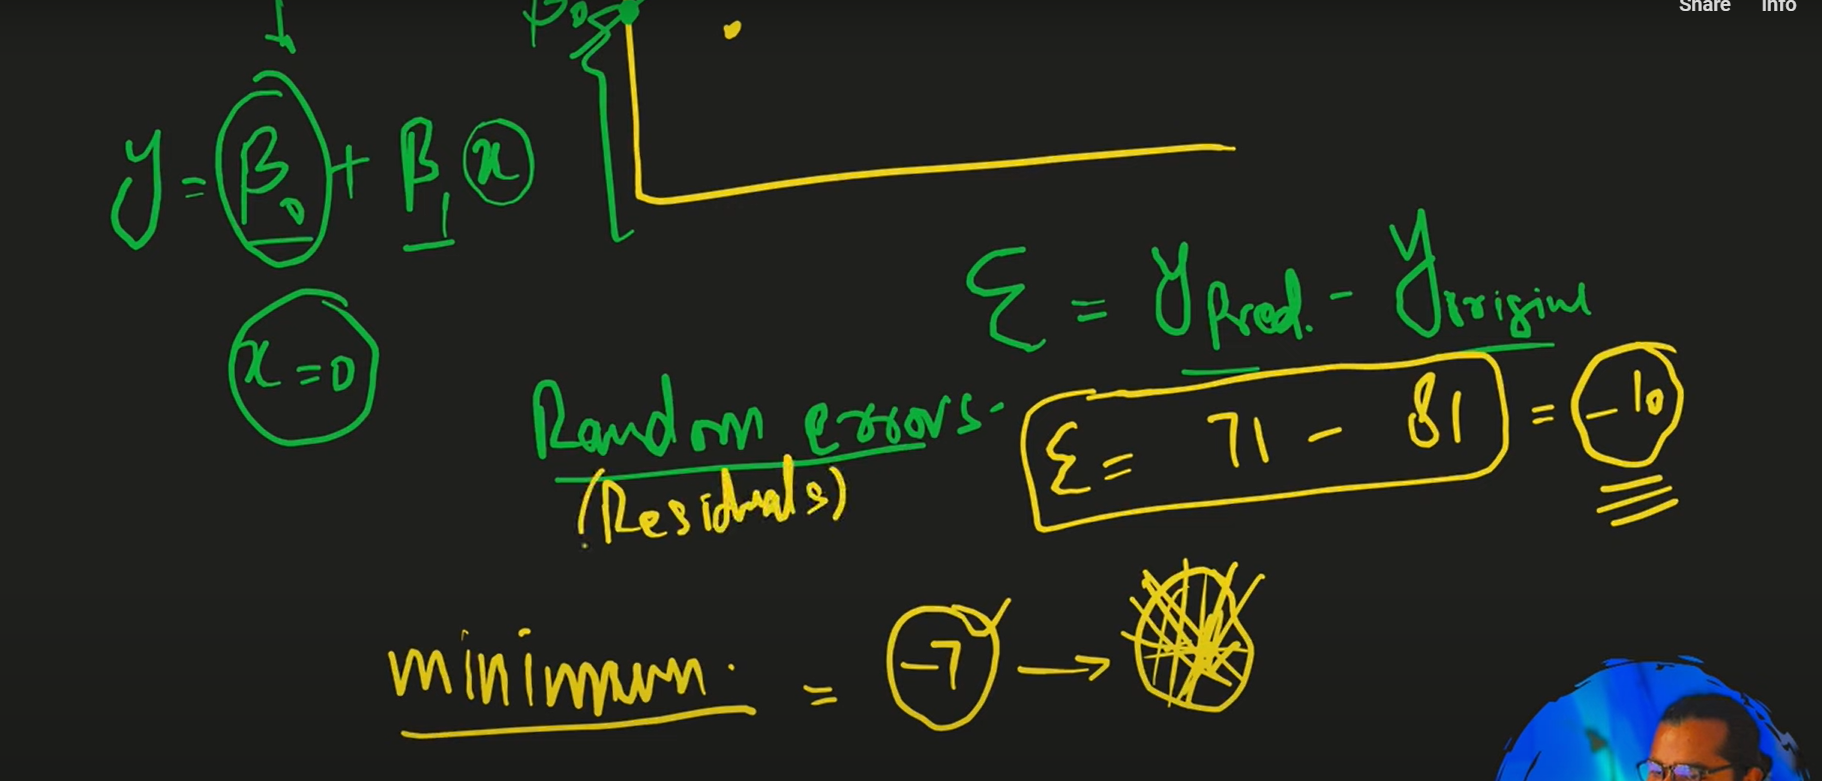 Share Info
β₀
y = β₀ + β₁ x
x = 0
Ɛ = y Pred. - y origine
Random errors.
(Residuals)
Ɛ = 71 - 81 = -10
minimum. = -7 →